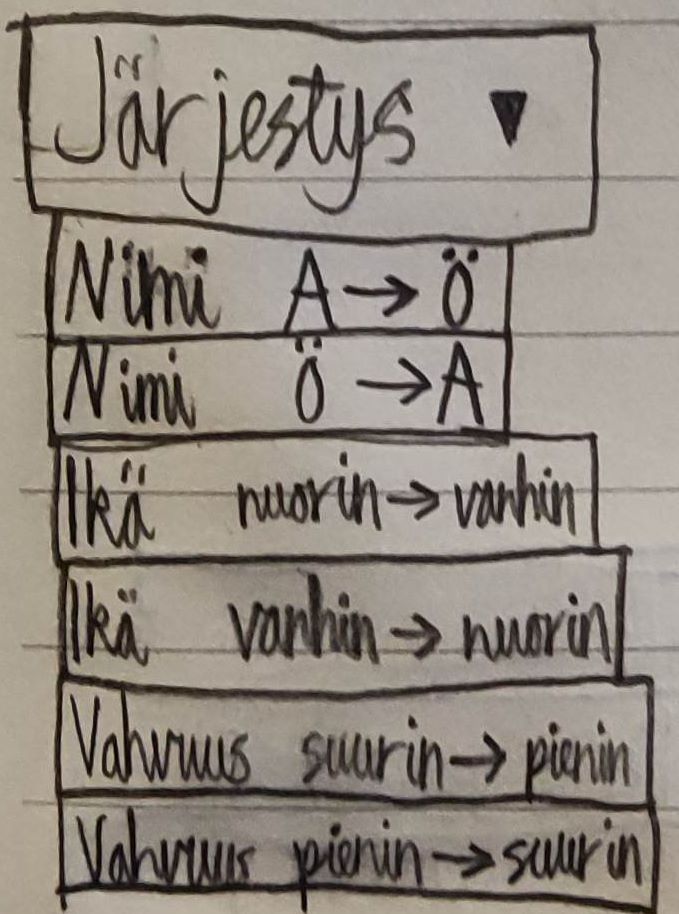 Järjestys ▼
Nimi A → Ö
Nimi Ö → A
Ikä nuorin → vanhin
Ikä vanhin → nuorin
Vahvuus suurin → pienin
Vahvuus pienin → suurin